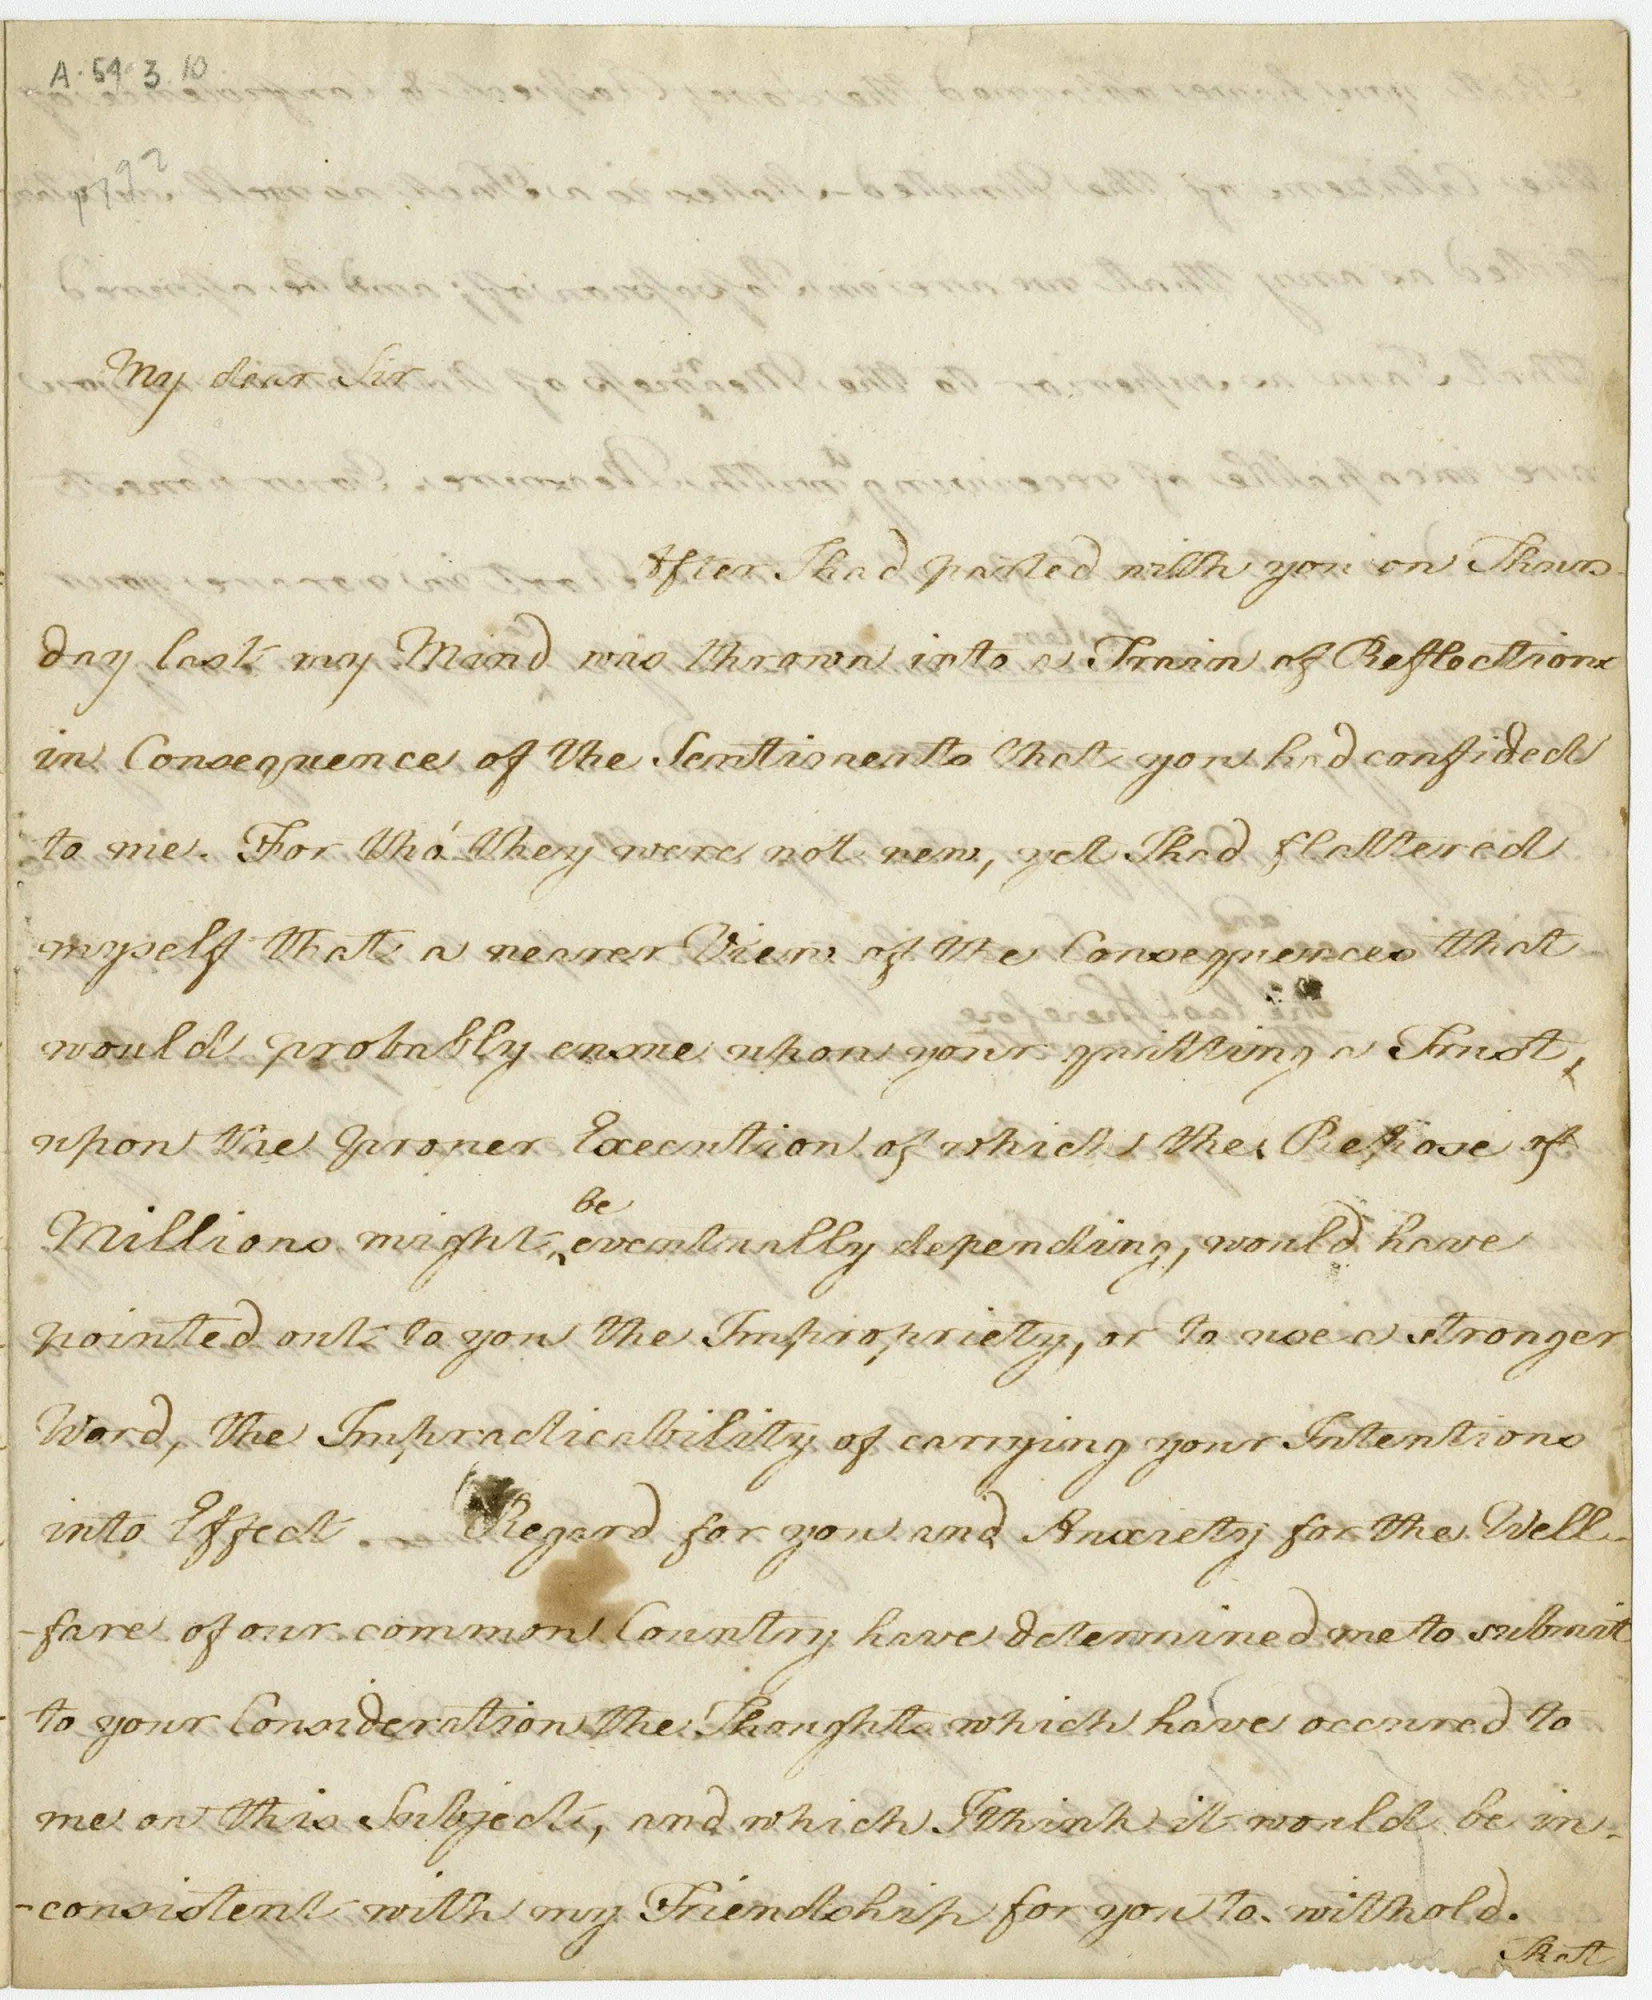 A.54.3.10
1792
My dear Sir
After I had parted with you on Thurs
day last my Mind was thrown into a Train of Reflections
in Consequence of the Sentiments that you had confided
to me. For tho' they were not new, yet I had flattered
myself that a nearer View of the Consequences that
would probably ensue upon your quitting a Trust,
upon the proper Execution of which the Repose of
be
Millions might ‸ eventually depending, would have
pointed out to you the Impropriety, or to use a stronger
Word, the Impracticability of carrying your Intentions
into Effect. — Regard for you and Anxiety for the Well-
-fare of our common Country have determined me to submit
to your Consideration the Thoughts which have occured to
me on this Subject, and which I think it would be in-
-consistent with my Friendship for you to withold.
That